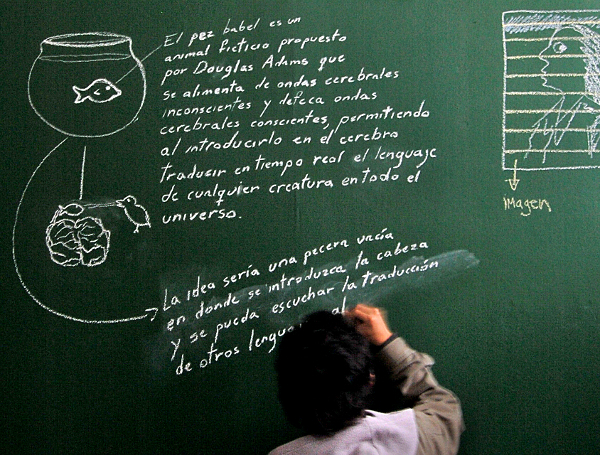 El pez babel es un
animal ficticio propuesto
por Douglas Adams que
se alimenta de ondas cerebrales
inconscientes y defeca ondas
cerebrales conscientes, permitiendo
al introducirlo en el cerebro
traducir en tiempo real el lenguaje
de cualquier creatura en todo el
universo.
La idea sería una pecera vacía
en donde se introduzca la cabeza
y se pueda escuchar la traducción
de otros al
Imagen